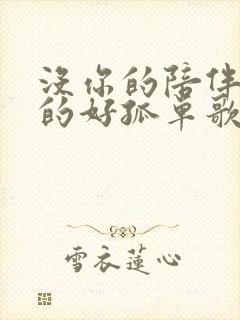 没你的陪伴
的好孤单歌
雪衣莲心